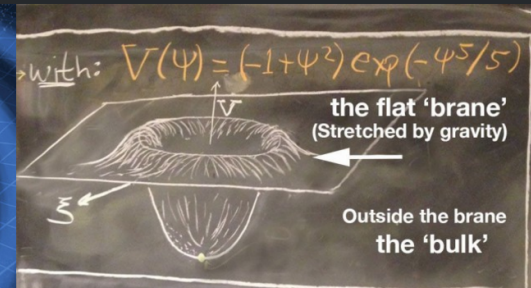 with: V(Ψ) = (-1+Ψ²) exp(-Ψ⁵/5)
V
the flat 'brane'
(Stretched by gravity)
ξ
Outside the brane
the 'bulk'